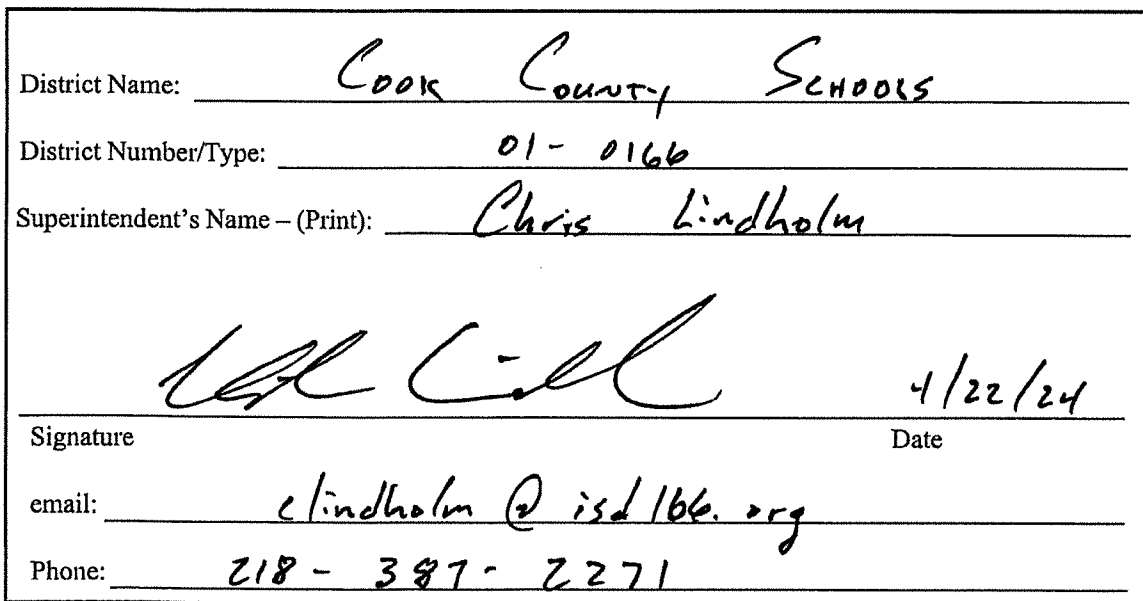 District Name: Cook County Schools
District Number/Type: 01-0166
Superintendent's Name – (Print): Chris Lindholm
4/22/24
Signature Date
email: clindholm@isd166.org
Phone: 218-387-2271